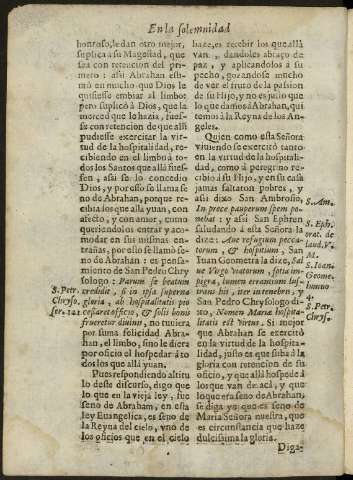 En la solemnidad
honroso, le dan otro mejor,
suplica a su Magestad, que
sea con retencion del pri-
mero: assi Abrahan esti-
mò en mucho que Dios le
quisiesse embiar al limbo:
pero suplicò a Dios, que la
merced que lo hazia, fues-
se con retencion de que alli
pudiesse exercitar la vir-
tud de la hospitalidad, re-
cibiendo en el limbo à to-
dos los Santos que allà fues-
sen, assi se lo concedio
Dios, y por esso se llama se
no de Abrahan, porque re-
cibia los que allà yuan, con
afecto, y con amor, como
queriendolos entrar y aco-
modar en sus mismas en-
trañas, por esso se llamò se-
no de Abrahan: es pensa-
miento de San Pedro Chry
sologo: Parum se beatum
S. Petr.
Chryso.
ser. 121
credidit, si in ipsa superna
gloria, ab hospitalitatis pio
cessaret officio, & solis bonis
frueretur diuinis, no tuuiera
por suma felicidad Abra-
han, el limbo, sino le diera
por oficio el hospedar à to
dos los que allà yuan.
Pues respondiendo al titu
lo deste discurso, digo que
lo que en la vieja ley, fue
seno de Abraham, en esta
ley Euangelica, es seno de
la Reyna del cielo, vno de
los oficios que en el cielo
haze, es recibir los que allà
van, dandoles abraço de
paz, y aplicandolos à su
pecho, gozandose mucho
de ver el fruto de la passion
de su Hijo, y no es justo que
lo que damos à Abrahan, qui
temos à la Reyna de los An
geles.
Quien como esta Señora
viuiendo se exercitò tanto
en la virtud de la hospitali-
dad, como à peregrino re-
cibio à su Hijo, y en su casa
jamas faltaron pobres, y
assi dixo San Ambrosio,
S. Am.
In prece pauperum spem po-
nebat y assi San Ephren
saludando à esta Señora la
S. Eph.
orat. de
laud. V.
M.
dize: Aue refugium pecca-
torum, & hospitium, San
Iuan Gometra la dize, Sal
S. Ioan.
Geome.
hymno
4.
ue Virgo viatorum, sola im-
pigra, lumen errantum lus-
trans hic, iter intenebris, y
San Pedro Chrysologo di-
S. Petr.
Chryso.
xo, Nomen Mariæ hospita-
litatis est virtus. Si mejor
que Abrahan se exercitò
en la virtud de la hospita-
lidad, justo es que suba à la
gloria con retencion de su
oficio, y que allà hospede à
los que van de acà, y que
lo que era seno de Abrahan,
se diga yo que es seno de
Maria Señora nuestra, que
es circunstancia que haze
dulcissima la gloria.
Diga-